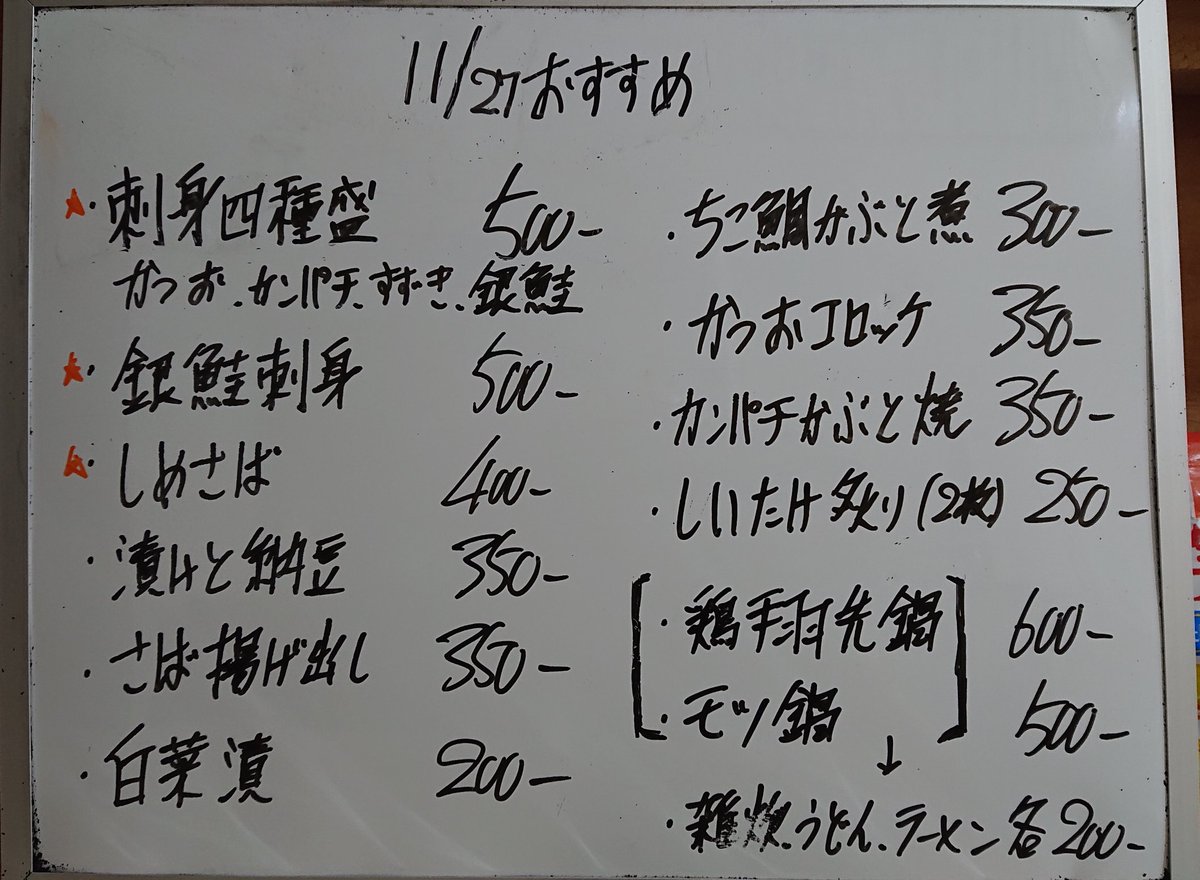 11/27おすすめ
★・刺身四種盛 500-
かつお、カンパチ、すずき、銀鮭
★・銀鮭刺身 500-
★・しめさば 400-
・漬けと納豆 350-
・さば揚げ出し 350-
・白菜漬 200-
・ちこ鯛かぶと煮 300-
・かつおコロッケ 350-
・カンパチかぶと焼 350-
・しいたけ炙り(2枚) 250-
・鶏手羽先鍋 600-
・モツ鍋 500-
↓
・雑炊、うどん、ラーメン各200-